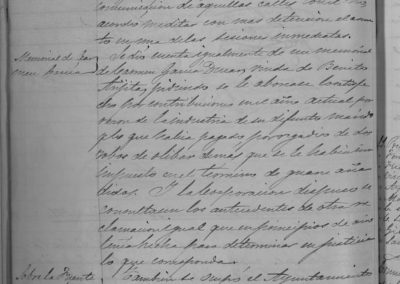 comunicacion de aquellas calles
acordó meditar con mas detencion el asun
to en una de las sesiones inmediatas.
Memorial de Car
men
Se dió cuenta igualmente de un memorial
de Carmen Garcia viuda de Benito
pidiendo se le abonase lo satisfe
cho por contribuciones en el año actual por
razon de la industria de su difunto marido
y lo que habia pagado por de dos
demás que se le habian
impuesto en el termino de
Y la corporacion dispuso se
consultasen los antecedentes de otra re
clamacion igual que en principios de año
tenia hecha para determinar en justicia
lo que corresponda.
Sobre la Fuente
Tambien se ocupó el Ayuntamiento